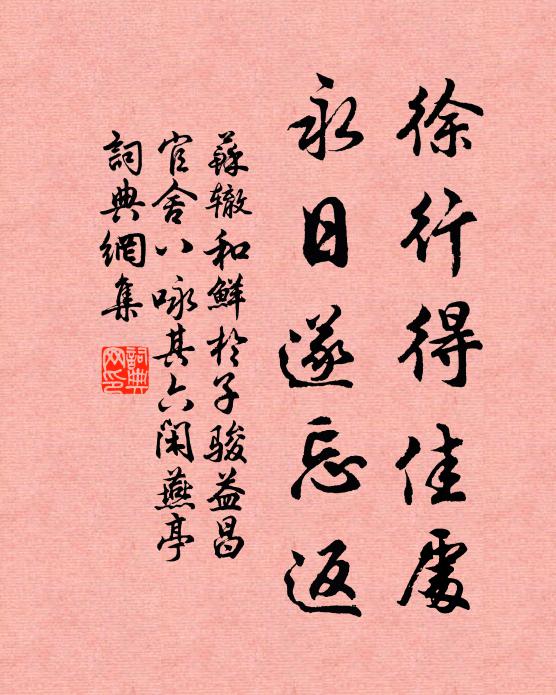 徐行得佳處
永日遂忘返
蘇辙和鮮於子骏益昌
官舍八咏其六閑燕亭
詞典網集
詞典网印